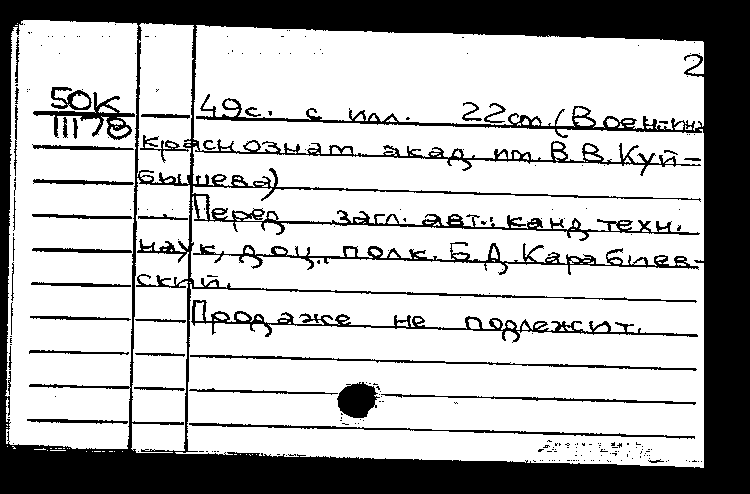 2
50К
11178
49с. с илл. 22см. (Воен.-инж
краснознам. акад. им. В.В. Куй-
бышева)
Перед загл. авт.: канд. техн.
наук, доц., полк. Б.Д. Карабиев-
ский.
Продаже не подлежит.